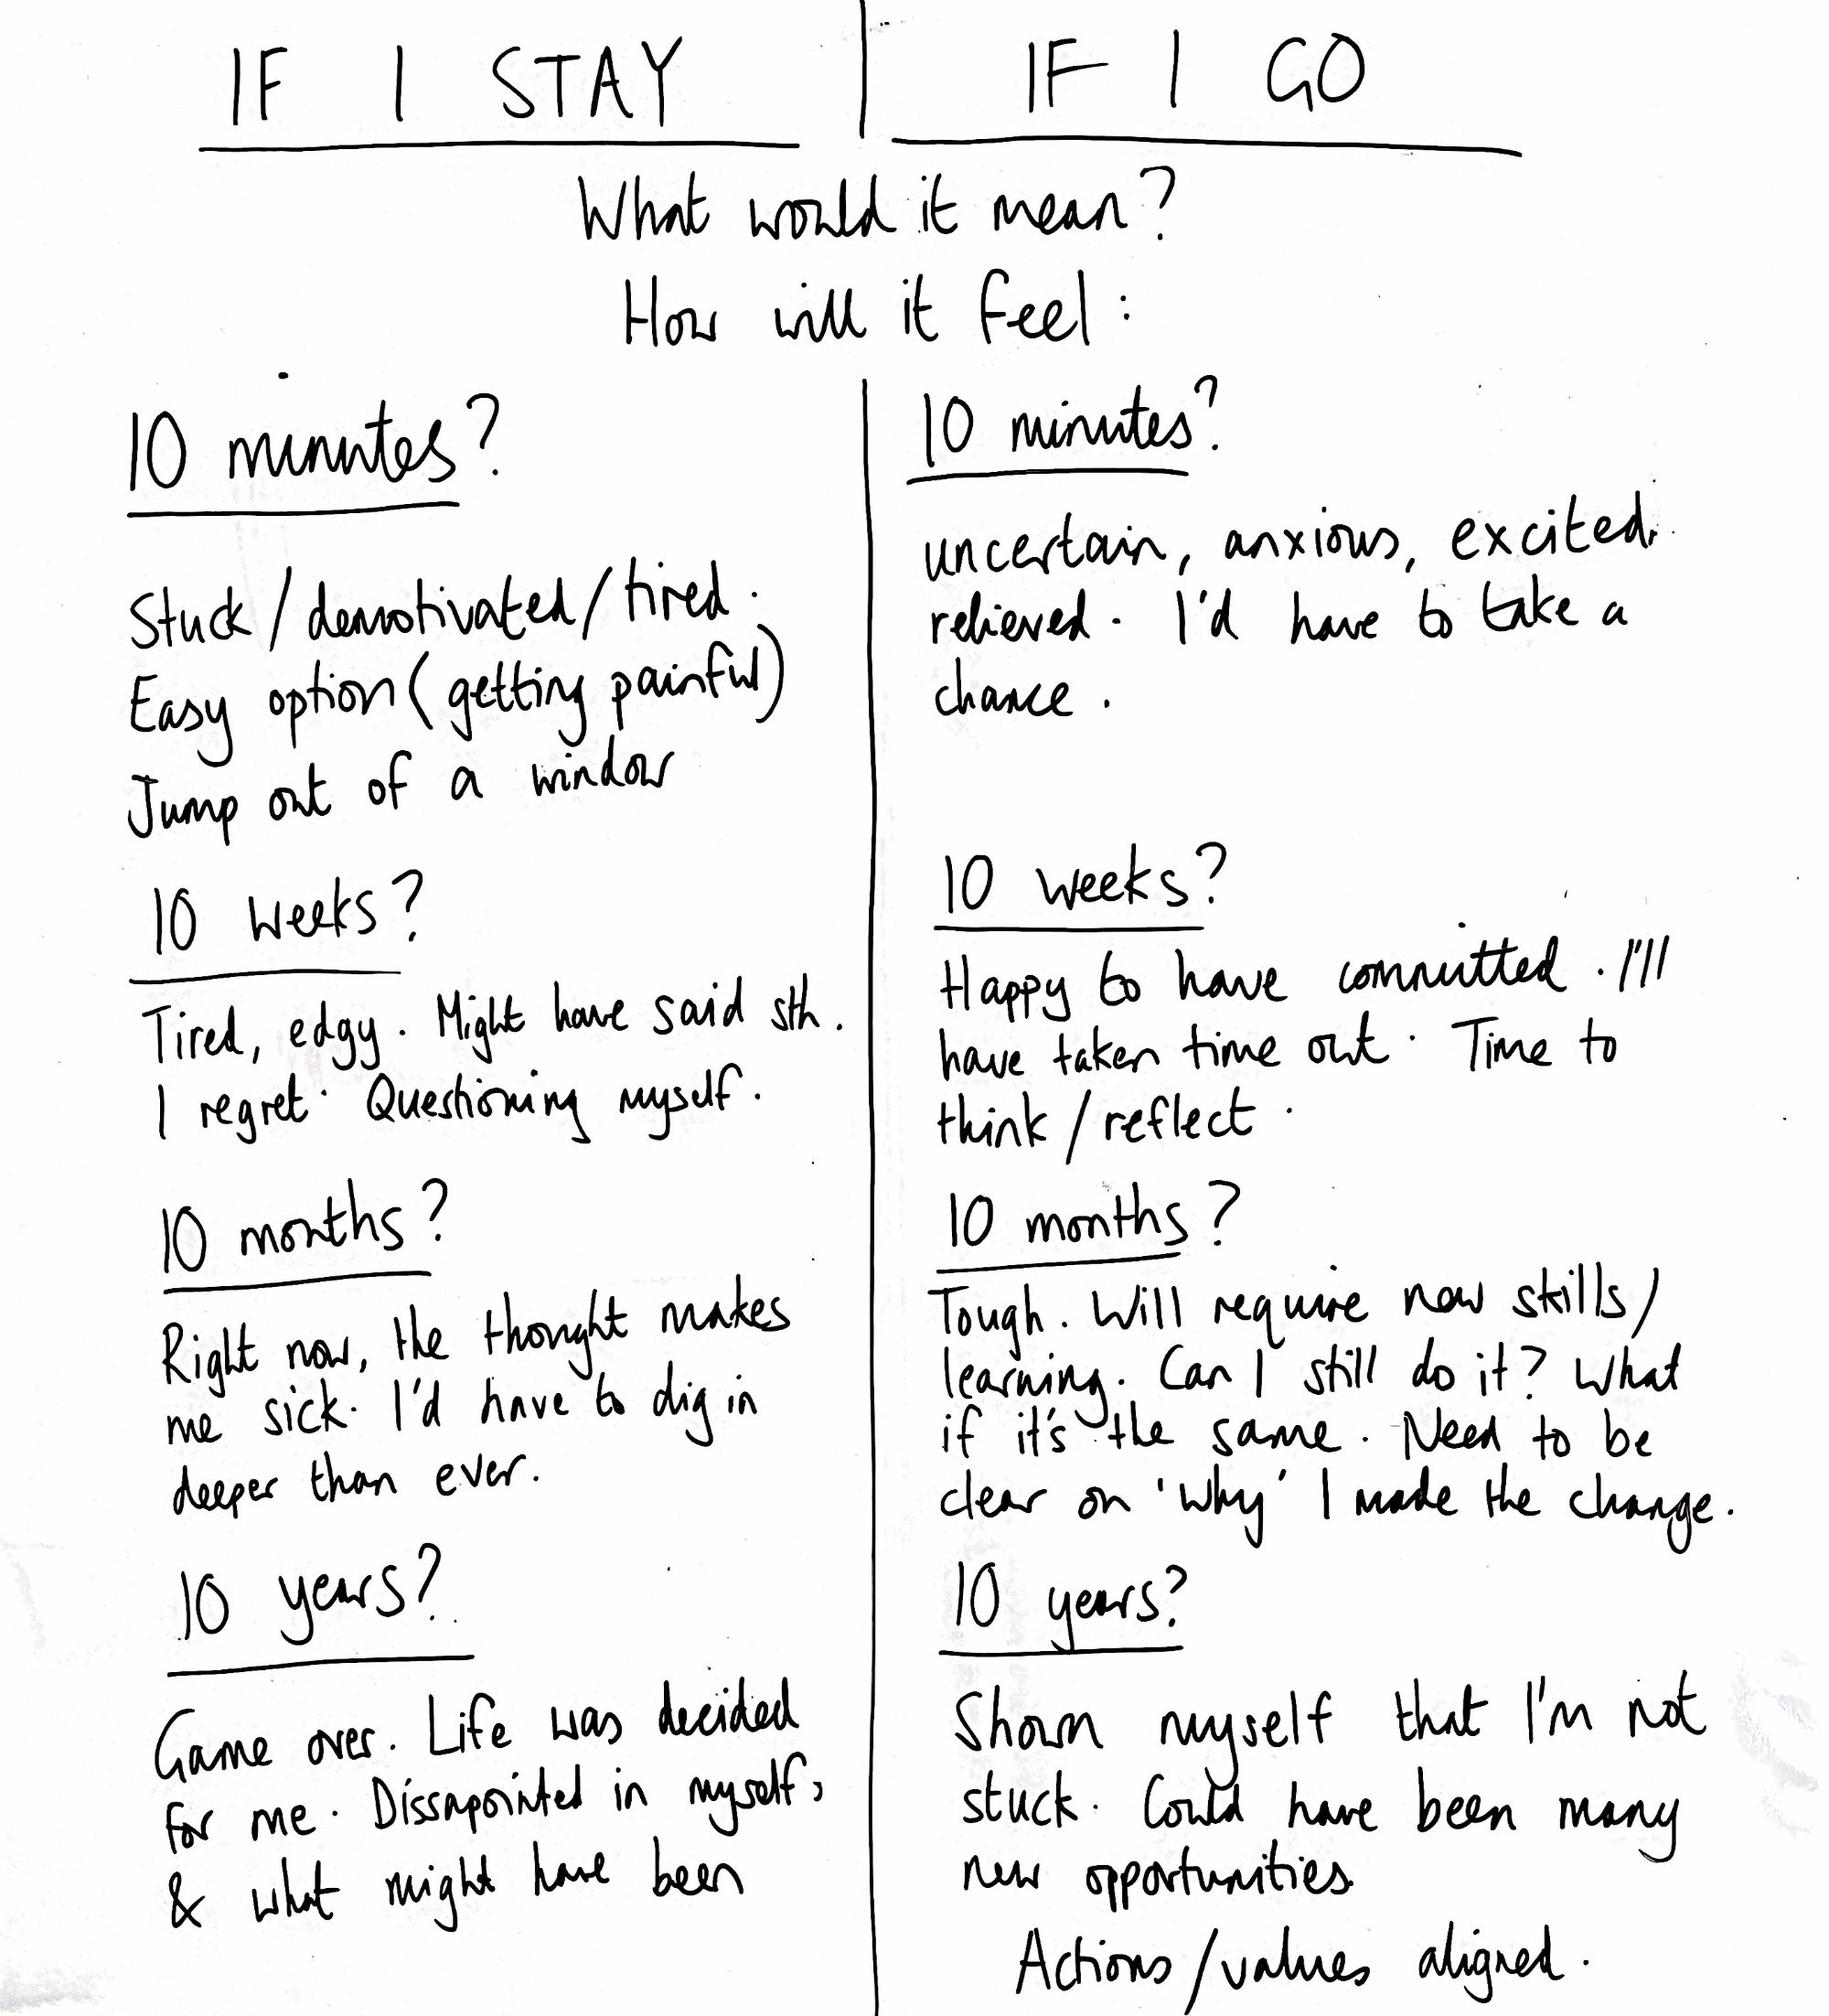 IF I STAY
IF I GO
What would it mean?
How will it feel:
10 minutes?
Stuck / demotivated / tired.
Easy option (getting painful)
Jump out of a window
10 weeks?
Tired, edgy. Might have said sth.
I regret. Questioning myself.
10 months?
Right now, the thought makes
me sick. I'd have to dig in
deeper than ever.
10 years?
Game over. Life was decided
for me. Dissapointed in myself,
& what might have been
10 minutes?
uncertain, anxious, excited.
relieved. I'd have to take a
chance.
10 weeks?
Happy to have committed. I'll
have taken time out. Time to
think / reflect.
10 months?
Tough. Will require new skills /
learning. Can I still do it? What
if it's the same. Need to be
clear on 'why' I made the change.
10 years?
Shown myself that I'm not
stuck. Could have been many
new opportunities.
Actions / values aligned.